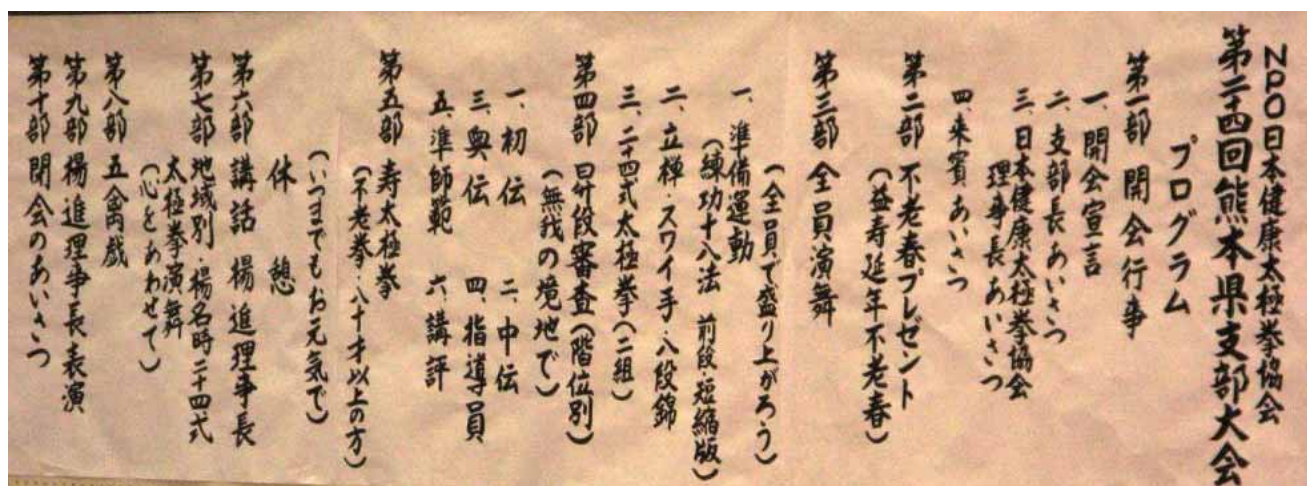 NPO日本健康太極拳協会
第二十四回熊本県支部大会
プログラム
第一部 開会行事
一、開会宣言
二、支部長あいさつ
三、日本健康太極拳協会
理事長あいさつ
四、来賓あいさつ
第二部 不老春プレゼント
(益寿延年不老春)
第三部 全員演舞
(全員で盛り上がろう)
一、準備運動
(練功十八法 前段・短縮版)
二、立禅・スワイ手・八段錦
三、二十四式太極拳(二組)
第四部 昇段審査(階位別)
(無我の境地で)
一、初伝 二、中伝
三、奥伝 四、指導員
五、準師範 六、講評
第五部 寿太極拳
(不老拳・八十才以上の方)
(いつまでもお元気で)
休憩
第六部 講話 楊進理事長
第七部 地域別・楊名時二十四式
太極拳演舞
(心をあわせて)
第八部 五禽戯
第九部 楊進理事長表演
第十部 閉会のあいさつ